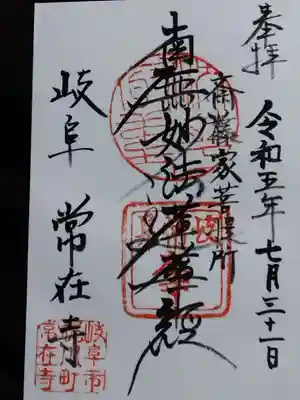 奉拝
令和五年 七月三十一日
斎藤家菩提所
南無妙法蓮華経
岐阜 常在寺
岐阜市
常在寺